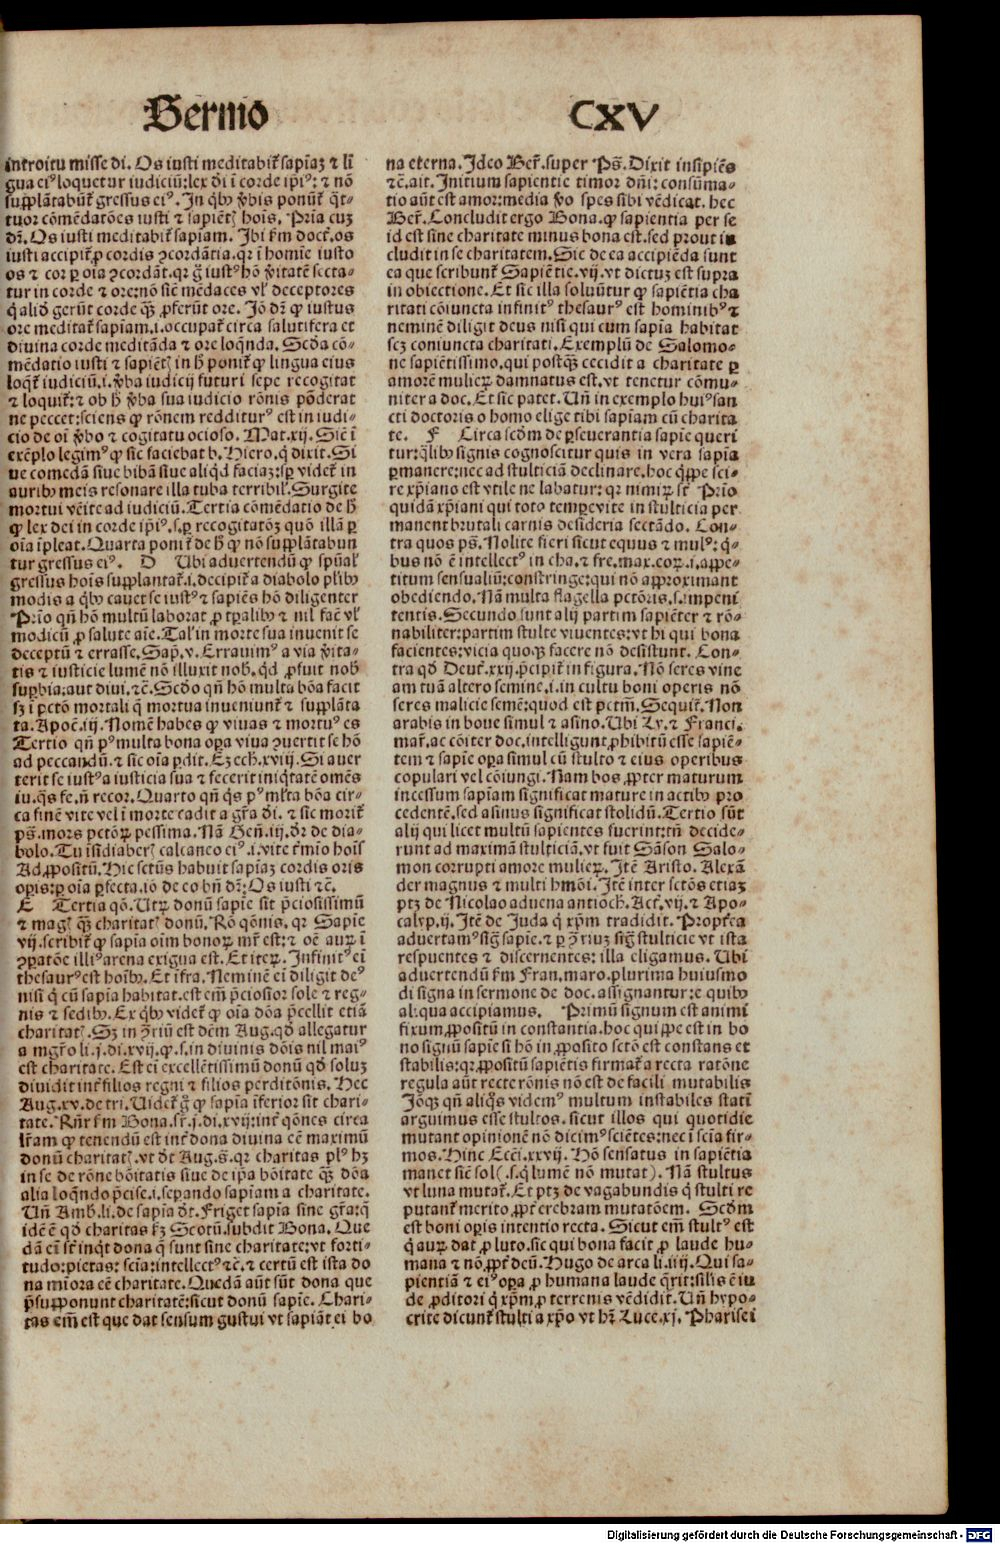 Sermo CXV
introitu misse di. Os iusti meditabit᷑ sapiaꝫ ⁊ li
gua eiꝰ loquetur iudiciū: lex dī ī corde ip̄iꝰ: ⁊ nō
supplātabūt᷑ gressus eiꝰ. In qͥbꝫ ꝟbis ponūt᷑ qͣt-
tuor cōmēdatōes iusti ⁊ sapiētꝭ hoīs. Pria cuꝫ
dr̄. Os iusti meditabit᷑ sapiam. Ibi ẜm doct᷑. os
iusti accipit᷑ ꝓ cordis ꝯcordātia. qꝛ ī homīe iusto
os ⁊ cor ꝑ oīa ꝯcordāt. qꝛ ḡ iustꝰ hō ꝟitatē secta-
tur in corde ⁊ ore: nō sic̄ mēdaces vl᷑ deceptores
q̇ aliḋ gerūt corde qꝫ̄ ꝓferūt ore. Iō dr̄ ꝙ iustus
ore meditat᷑ sapīam. i. occupat᷑ circa salutifera et
diuina corde meditāda ⁊ ore loqn̄da. Scḋa cō-
mēdatio iusti ⁊ sapiētꝭ in ħ ponit᷑ ꝙ lingua eius
loqt᷑ iudiciū. i. ꝟba iudicij futuri sepe recogitat
⁊ loquit᷑: ⁊ ob ħ ꝟba sua iudicio rōnis pōderat
ne peccet: sciens ꝙ rōnem redditurꝰ est in iudi-
cio de oī ꝟbo ⁊ cogitatu ocioso. Mat. xij. Sic̄ ī
exēplo legimꝰ ꝙ sic faciebat b. Hiero. q̇ dixit. Si
ue comedā siue bibā siue aliqḋ faciaꝫ: sꝑ videt᷑ in
auribꝫ meis resonare illa tuba terribil᷑. Surgite
mortui vēite ad iudiciū. Tertia cōmēdatio de ħ
ꝙ lex dei in corde ip̄iꝰ. s. ꝑ recogitatōꝫ quō illā ꝑ
oīa īpleat. Quarta ponit᷑ de ħ ꝙ nō supplātabun
tur gressus eiꝰ. D Ubi aduertendū ꝙ spūal᷑
gressus hoīs supplantat᷑. i. decipit᷑ a diabolo pl᷑ibꝫ
modis a qͥbꝫ cauet se iustꝰ ⁊ sapiēs hō diligenter
Prio qn̄ hō multū laborat ꝓ tꝑalibꝫ ⁊ nil fac̄ vl᷑
modicū ꝓ salute aīe. Tal᷑ in morte sua inuenit se
deceptū ⁊ errasse. Sap̄. v. Errauimꝰ a via ꝟita-
tis ⁊ iusticie lumē nō illuxit nob̄. qḋ ꝓfuit nob̄
suꝑbia: aut diui. ⁊c̄. Scḋo qn̄ hō multa bōa facit
sꝫ ī pctō mortali q̇ mortua inueniunt᷑ ⁊ supplāta
ta. Apoc̄. iij. Nomē habes ꝙ viuas ⁊ mortuꝰ es
Tertio qn̄ pꝰ multa bona oꝑa viua ꝯuertit se hō
ad peccandū. ⁊ sic oīa ꝑdit. Ezech. xviij. Si auer
terit se iustꝰ a iusticia sua ⁊ fecerit iniqͥtatē omēs
iu. qͣs fe. n̄ recor. Quarto qn̄ qͥs pꝰ ml᷑ta bōa cir-
ca finē vite vel ī morte cadit a gr̄a dī. ⁊ sic morit᷑
ps̄. mors pctōꝝ pessima. Nā Gen̄. iij. dr̄ de dia-
bolo. Tu īsidiaberꝭ calcaneo eiꝰ. i. vite t᷑mīo hoīs
Ad ꝓpositū. Hic sctūs habuit sapiaꝫ cordis oris
oꝑis: ꝑ oīa ꝑfecta. iō de eo bn̄ dr̄: Os iusti ⁊c̄.
E Tertia qō. Utꝝ donū sapie sit p̄ciosissimū
⁊ magꝭ qꝫ̄ charitatꝭ donū. Rō qōnis. qꝛ Sapie
vij. scribit᷑ ꝙ sapia oīm bonoꝝ mr̄ est: ⁊ oē auꝝ ī
ꝯꝑatōe illiꝰ arena exigua est. Et iteꝝ. Infinitꝰ eī
thesaurꝰ est hoībꝫ. Et īfra. Neminē eī diligit deꝰ
nisi q̇ cū sapīa habitat. est em̄ p̄ciosior sole ⁊ reg-
nis ⁊ sedibꝫ. Ex qͥbꝫ videt᷑ ꝙ oīa dōa p̄cellit etiā
charitatꝭ. Sꝫ in ꝯ̄riū est dc̄m Aug. qḋ allegatur
a mgr̄o li. j. di. xvij. ꝙ. s. in diuinis dōis nil maiꝰ
est charitate. Est eī excellētissimū donū qḋ soluꝫ
diuidit int᷑ filios regni ⁊ filios perditōnis. Hec
Aug. xv. de tri. Uidet᷑ ḡ ꝙ sapīa īferior sit chari-
tate. Rn̄r ẜm Bona. sr̄. j. di. xvij: int᷑ qōnes circa
lr̄am ꝙ tenendū est int᷑ dona diuina eē maximū
donū charitatꝭ. vt dt̄ Aug. s̄. qꝛ charitas plꝰ hꝫ
in se de rōne bōitatis siue de ip̄a bōitate qꝫ̄ dōa
alia loqn̄do p̄cise. i. sepando sapiam a charitate.
Un̄ Amb̄. li. de sapīa dt̄. Friget sapīa sine gr̄a: q̇
idē ē qḋ charitas ẜꝫ Scotū. subdit Bona. Que
dā eī sr̄ inqͥt dona q̄ sunt sine charitate: vt forti-
tudo: pietas: scia: intellectꝰ ⁊c̄. ⁊ certū est ista do
na mīora eē charitate. Quedā aūt sūt dona que
p̄supponunt charitatē: sicut donū sapīe. Chari-
tas em̄ est que dat sensum gustui vt sapiāt ei bo
na eterna. Ideo Ber̄. super Ps̄. Dixit insipiēs
⁊c̄. ait. Initium sapientie timor dn̄i: consūma-
tio aūt est amor: media ꝟo spes sibi vēdicat. hec
Ber̄. Concludit ergo Bona. ꝙ sapientia per se
id est sine charitate minus bona est. sed prout in
cludit in se charitatem. Sic de ea accipiēda sunt
ea que scribunt᷑ Sapiētie. vij. vt dictuꝫ est supra
in obiectione. Et sic illa soluūtur ꝙ sapiētia cha
ritati cōiuncta infinitꝰ thesaurꝰ est hominibꝰ ⁊
neminē diligit deus nisi qui cum sapīa habitat
scꝫ coniuncta charitati. Exemplū de Salomo-
ne sapiētissimo. qui postqꝫ̄ cecidit a charitate ꝑ
amorē mulieꝝ damnatus est. vt tenetur cōmu-
niter a doc. Et sic patet. Un̄ in exemplo huiꝰ san
cti doctoris o homo elige tibi sapiam cū charita
te. F Circa scḋm de ꝑseuerantia sapīe queri
tur: qͥlibꝫ signis cognoscitur quis in vera sapia
ꝑmanere: nec ad stulticiā declinare. hoc qͥppe sci-
re xp̄iano est vtile ne labatur: qꝛ nimiꝝ sr̄ Prio
quidā xp̄iani qui toto tempe vite in stulticia per
manent brutali carnis desideria sectādo. Con-
tra quos ps̄. Nolite fieri sicut equus ⁊ mulꝰ: qͥ-
bus nō ē intellectꝰ in cha. ⁊ fre. max. eoꝝ. i. appe-
titum sensualiū: constringe: qui nō approximant
obediendo. Nā multa flagella pctōris. s. impeni
tentis. Secundo sunt alij partim sapiēter ⁊ rō-
nabiliter: partim stulte viuentes: vt hi qui bona
facientes: vicia quoqꝫ facere nō desistunt. Con-
tra qḋ Deut᷑. xxij. p̄cipit᷑ in figura. Nō seres vine
am tuā altero semine. i. in cultu boni operis nō
seres malicie semē: quod est pctm̄. Sequit᷑. Non
arabis in boue simul ⁊ asino. Ubi Ly. ⁊ Franci.
mar̄. ac cōiter doc. intelligunt ꝓhibitū esse sapiē-
tem ⁊ sapīe oꝑa simul cū stulto ⁊ eius operibus
copulari vel cōiungi. Nam bos ꝓpter maturum
incessum sapīam significat mature in actibꝫ pro
cedentē. sed asinus significat stolidū. Tertio sūt
alij qui licet multū sapientes fuerint: tn̄ decide-
runt ad maximā stulticiā. vt fuit Sāson Salo-
mon corrupti amore mulieꝝ. Itē Aristo. Alexā
der magnus ⁊ multi hmōi. Itē inter sctōs etiaꝫ
ptꝫ de Nicolao aduena antioch̄. Act᷑. vij. ⁊ Apo-
calyp. ij. Itē de Iuda q̇ xp̄m tradidit. Propt᷑ea
aduertamꝰ sig᷑ sapīe. ⁊ ꝑ ꝯ̄riuꝫ sig᷑ stulticie vt ista
respuentes ⁊ discernentes: illa eligamus. Ubi
aduertendū ẜm Fran. maro. plurima huiusmo
di signa in sermone de doc. assignantur: e quibꝫ
aliqua accipiamus. Primū signum est animi
fixum ꝓpositū in constantia. hoc quippe est in bo
no signū sapīe si hō in ꝓposito sctō est constans et
stabilis: qꝛ ꝓpositū sapiētis firmat᷑ a recta ratōne
regula aūt recte rōnis nō est de facili mutabilis
Iōqꝫ qn̄ aliqͦs videmꝰ multum instabiles statī
arguimus esse stultos. sicut illos qui quotidie
mutant opinionē nō dicimꝰ sciētes: nec ī scīa fir-
mos. Hinc Ecc̄i. xxvij. Hō sensatus in sapiētia
manet sic̄ sol (. s. q̇ lumē nō mutat). Nā stultus
vt luna mutat᷑. Et ptꝫ de vagabundis q̇ stulti re
putant᷑ merito ꝓpt᷑ crebram mutatōem. Scḋm
est boni oꝑis intentio recta. Sicut em̄ stultꝰ est
q̇ auꝝ dat ꝓ luto. sic qui bona facit ꝓ laude hu-
mana ⁊ nō ꝓpt᷑ deū. Hugo de arca li. iiij. Qui sa-
pientiā ⁊ eiꝰ oꝑa ꝓ humana laude qr̄it: sīlis ē iu
de ꝓditori q̇ xp̄m ꝓ terrenis vēdidit. Un̄ hypo-
crite dicunt᷑ stulti a xp̄o vt hr̄ Luce. xj. Pharisei
Digitalisierung gefördert durch die Deutsche Forschungsgemeinschaft - DFG